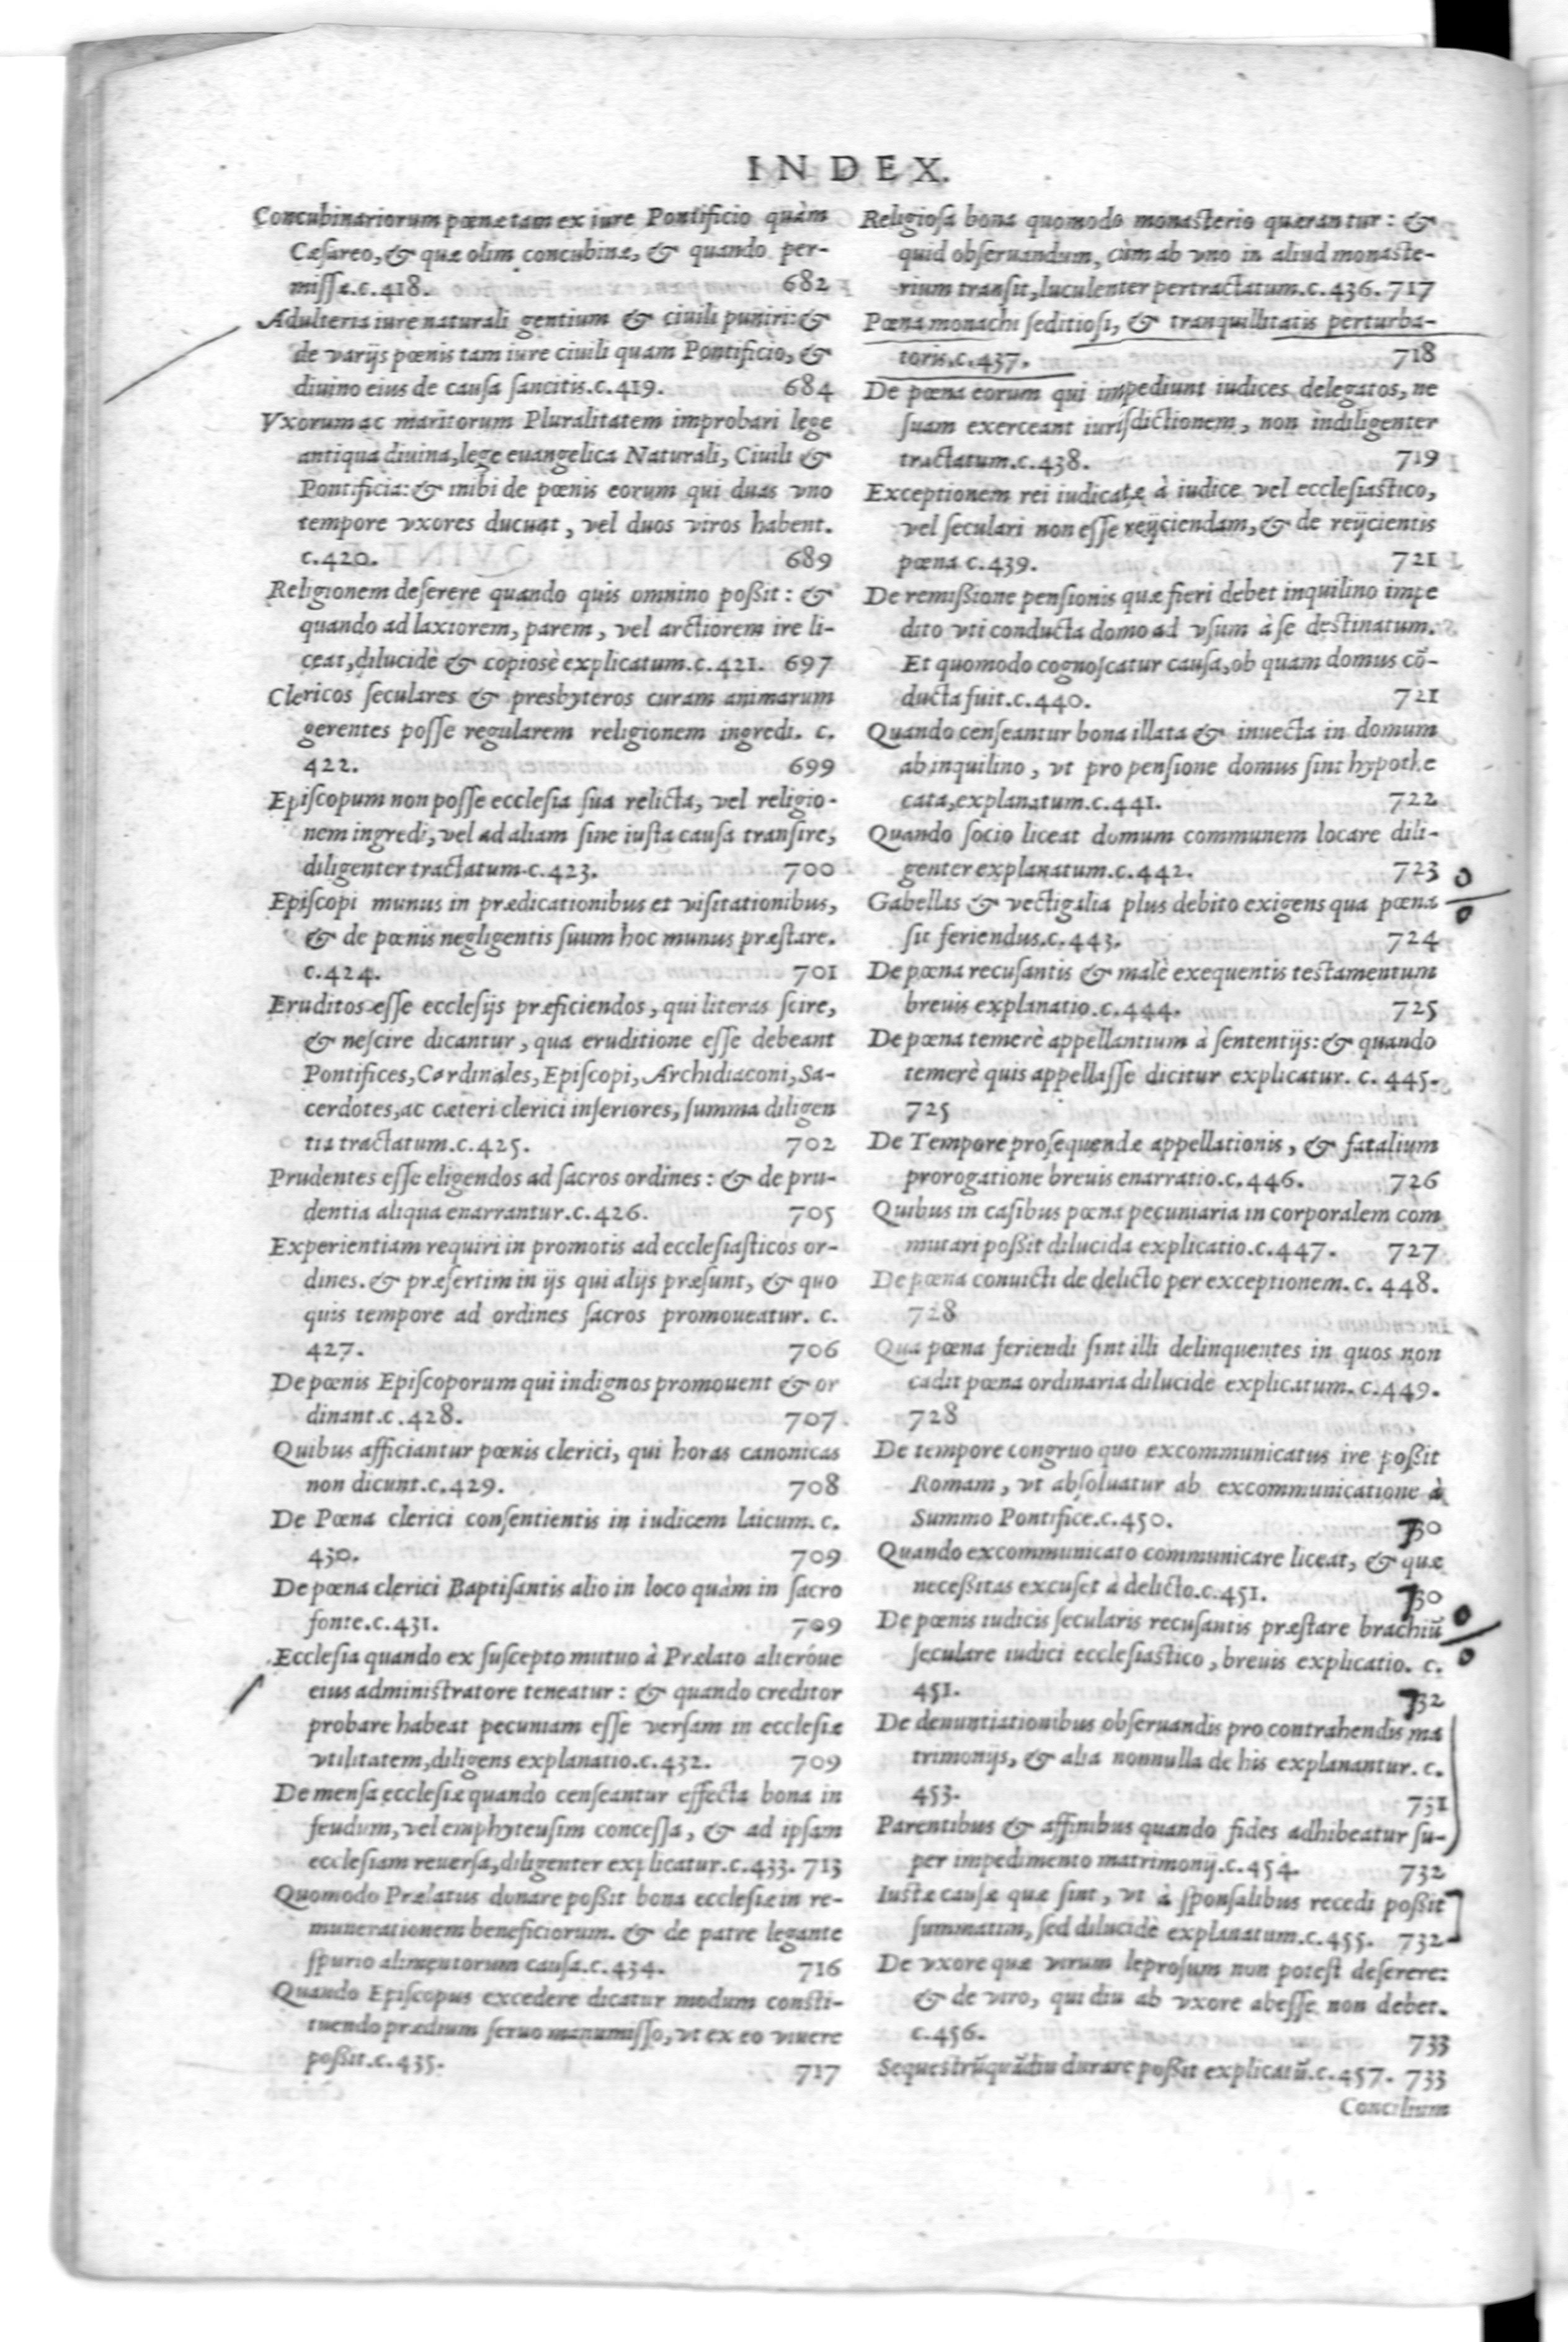 INDEX.
Concubinariorum pœnæ tam ex iure Pontificio quàm
Cæsareo, & quæ olim concubinæ, & quando per-
missæ.c.418. 682
Adulteria iure naturali gentium & ciuili puniri: &
de varijs pœnis tam iure ciuili quam Pontificio, &
diuino eius de causa sancitis.c.419. 684
Vxorum ac maritorum Pluralitatem improbari lege
antiqua diuina, lege euangelica Naturali, Ciuili &
Pontificia: & inibi de pœnis eorum qui duas vno
tempore vxores ducunt, vel duos viros habent.
c.420. 689
Religionem deserere quando quis omnino poßit: &
quando ad laxiorem, parem, vel arctiorem ire li-
ceat, dilucidè & copiosè explicatum.c.421. 697
Clericos seculares & presbyteros curam animarum
gerentes posse regularem religionem ingredi. c.
422. 699
Episcopum non posse ecclesia sua relicta, vel religio-
nem ingredi, vel ad aliam sine iusta causa transire,
diligenter tractatum.c.423. 700
Episcopi munus in prædicationibus et visitationibus,
& de pœnis negligentis suum hoc munus præstare.
c.424. 701
Eruditos esse ecclesijs præficiendos, qui literas scire,
& nescire dicantur, qua eruditione esse debeant
Pontifices, Cardinales, Episcopi, Archidiaconi, Sa-
cerdotes, ac cæteri clerici inferiores, summa diligen
tia tractatum.c.425. 702
Prudentes esse eligendos ad sacros ordines: & de pru-
dentia aliqua enarrantur.c.426. 705
Experientiam requiri in promotis ad ecclesiasticos or-
dines. & præsertim in ijs qui alijs præsunt, & quo
quis tempore ad ordines sacros promoueatur. c.
427. 706
De pœnis Episcoporum qui indignos promouent & or
dinant.c.428. 707
Quibus afficiantur pœnis clerici, qui horas canonicas
non dicunt.c.429. 708
De Pœna clerici consentientis in iudicem laicum. c.
430. 709
De pœna clerici Baptisantis alio in loco quàm in sacro
fonte.c.431. 709
Ecclesia quando ex suscepto mutuo à Prælato alteróue
eius administratore teneatur: & quando creditor
probare habeat pecuniam esse versam in ecclesiæ
vtilitatem, diligens explanatio.c.432. 709
De mensa ecclesiæ quando censeantur effecta bona in
feudum, vel emphyteusim concessa, & ad ipsam
ecclesiam reuersa, diligenter explicatur.c.433. 713
Quomodo Prælatus donare poßit bona ecclesiæ in re-
munerationem beneficiorum. & de patre legante
spurio alimentorum causa.c.434. 716
Quando Episcopus excedere dicatur modum consti-
tuendo prædium seruo manumisso, vt ex eo viuere
poßit.c.435. 717
Religiosa bona quomodo monasterio quærantur: &
quid obseruandum, cùm ab vno in aliud monaste-
rium transit, luculenter pertractatum.c.436. 717
Pœna monachi seditiosi, & tranquillitatis perturba-
toris.c.437. 718
De pœna eorum qui impediunt iudices delegatos, ne
suam exerceant iurisdictionem, non indiligenter
tractatum.c.438. 719
Exceptionem rei iudicatæ à iudice vel ecclesiastico,
vel seculari non esse reijciendam, & de reijcientis
pœna c.439. 721
De remißione pensionis quæ fieri debet inquilino impe
dito vti conducta domo ad vsum à se destinatum.
Et quomodo cognoscatur causa, ob quam domus cō-
ducta fuit.c.440. 721
Quando censeantur bona illata & inuecta in domum
ab inquilino, vt pro pensione domus sint hypothe
cata, explanatum.c.441. 722
Quando socio liceat domum communem locare dili-
genter explanatum.c.442. 723
Gabellas & vectigalia plus debito exigens qua pœna
sit feriendus.c.443. 724
De pœna recusantis & malè exequentis testamentum
breuis explanatio.c.444. 725
De pœna temerè appellantium à sententijs: & quando
temerè quis appellasse dicitur explicatur. c. 445.
725
De Tempore prosequendæ appellationis, & fatalium
prorogatione breuis enarratio.c.446. 726
Quibus in casibus pœna pecuniaria in corporalem com
mutari poßit dilucida explicatio.c.447. 727
De pœna conuicti de delicto per exceptionem. c. 448.
728
Qua pœna feriendi sint illi delinquentes in quos non
cadit pœna ordinaria dilucidè explicatum. c.449.
728
De tempore congruo quo excommunicatus ire poßit
Romam, vt absoluatur ab excommunicatione à
Summo Pontifice.c.450. 730
Quando excommunicato communicare liceat, & quæ
neceßitas excuset à delicto.c.451. 730
De pœnis iudicis secularis recusantis præstare brachiū
seculare iudici ecclesiastico, breuis explicatio. c.
451. 732
De denuntiationibus obseruandis pro contrahendis ma
trimonijs, & alia nonnulla de his explanantur. c.
453. 731
Parentibus & affinibus quando fides adhibeatur su-
per impedimento matrimonij.c.454. 732
Iustæ causæ quæ sint, vt à sponsalibus recedi poßit
summatim, sed dilucidè explanatum.c.455. 732
De vxore quæ virum leprosum non potest deserere:
& de viro, qui diu ab vxore abesse non debet.
c.456. 733
Sequestrū quādiu durare poßit explicatū.c.457. 733
Concilium